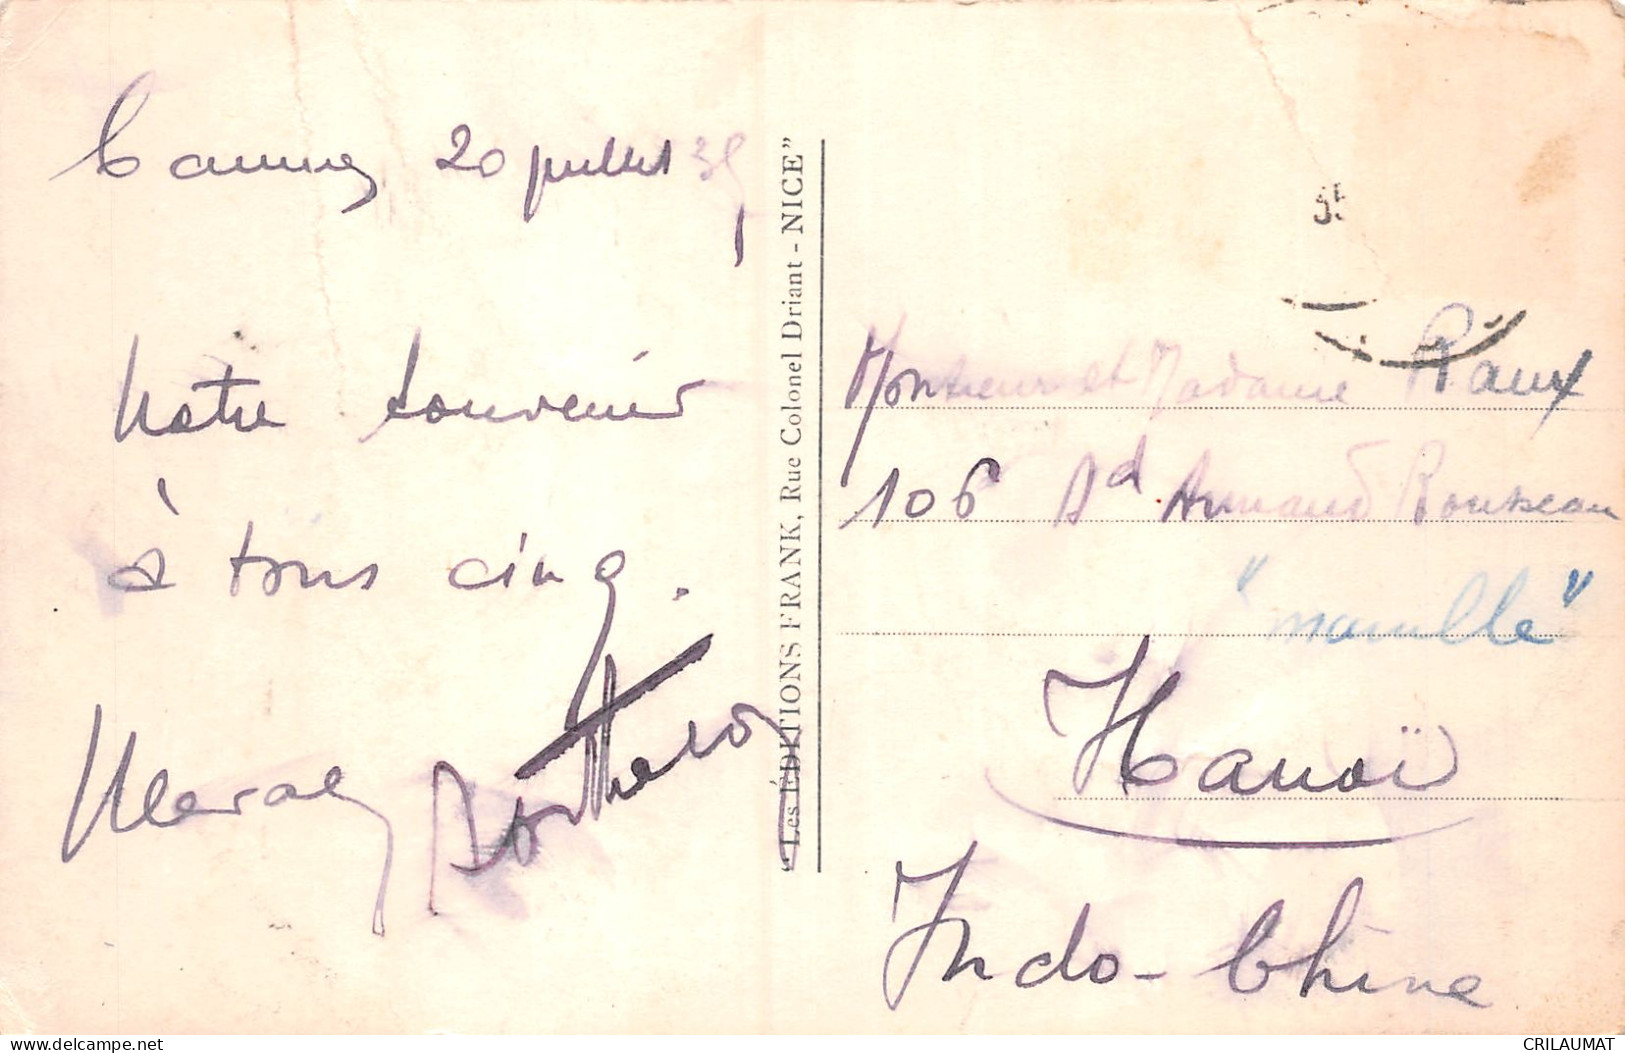 Cannes 20 juillet 35
Notre souvenir
à tous cinq.
"Les ÉDITIONS FRANK, Rue Colonel Driant - NICE"
Monsieur et Madame Raux
106 Bd Armand Rousseau
Hanoï
Indo-Chine
delcampe.net
CRILAUMAT